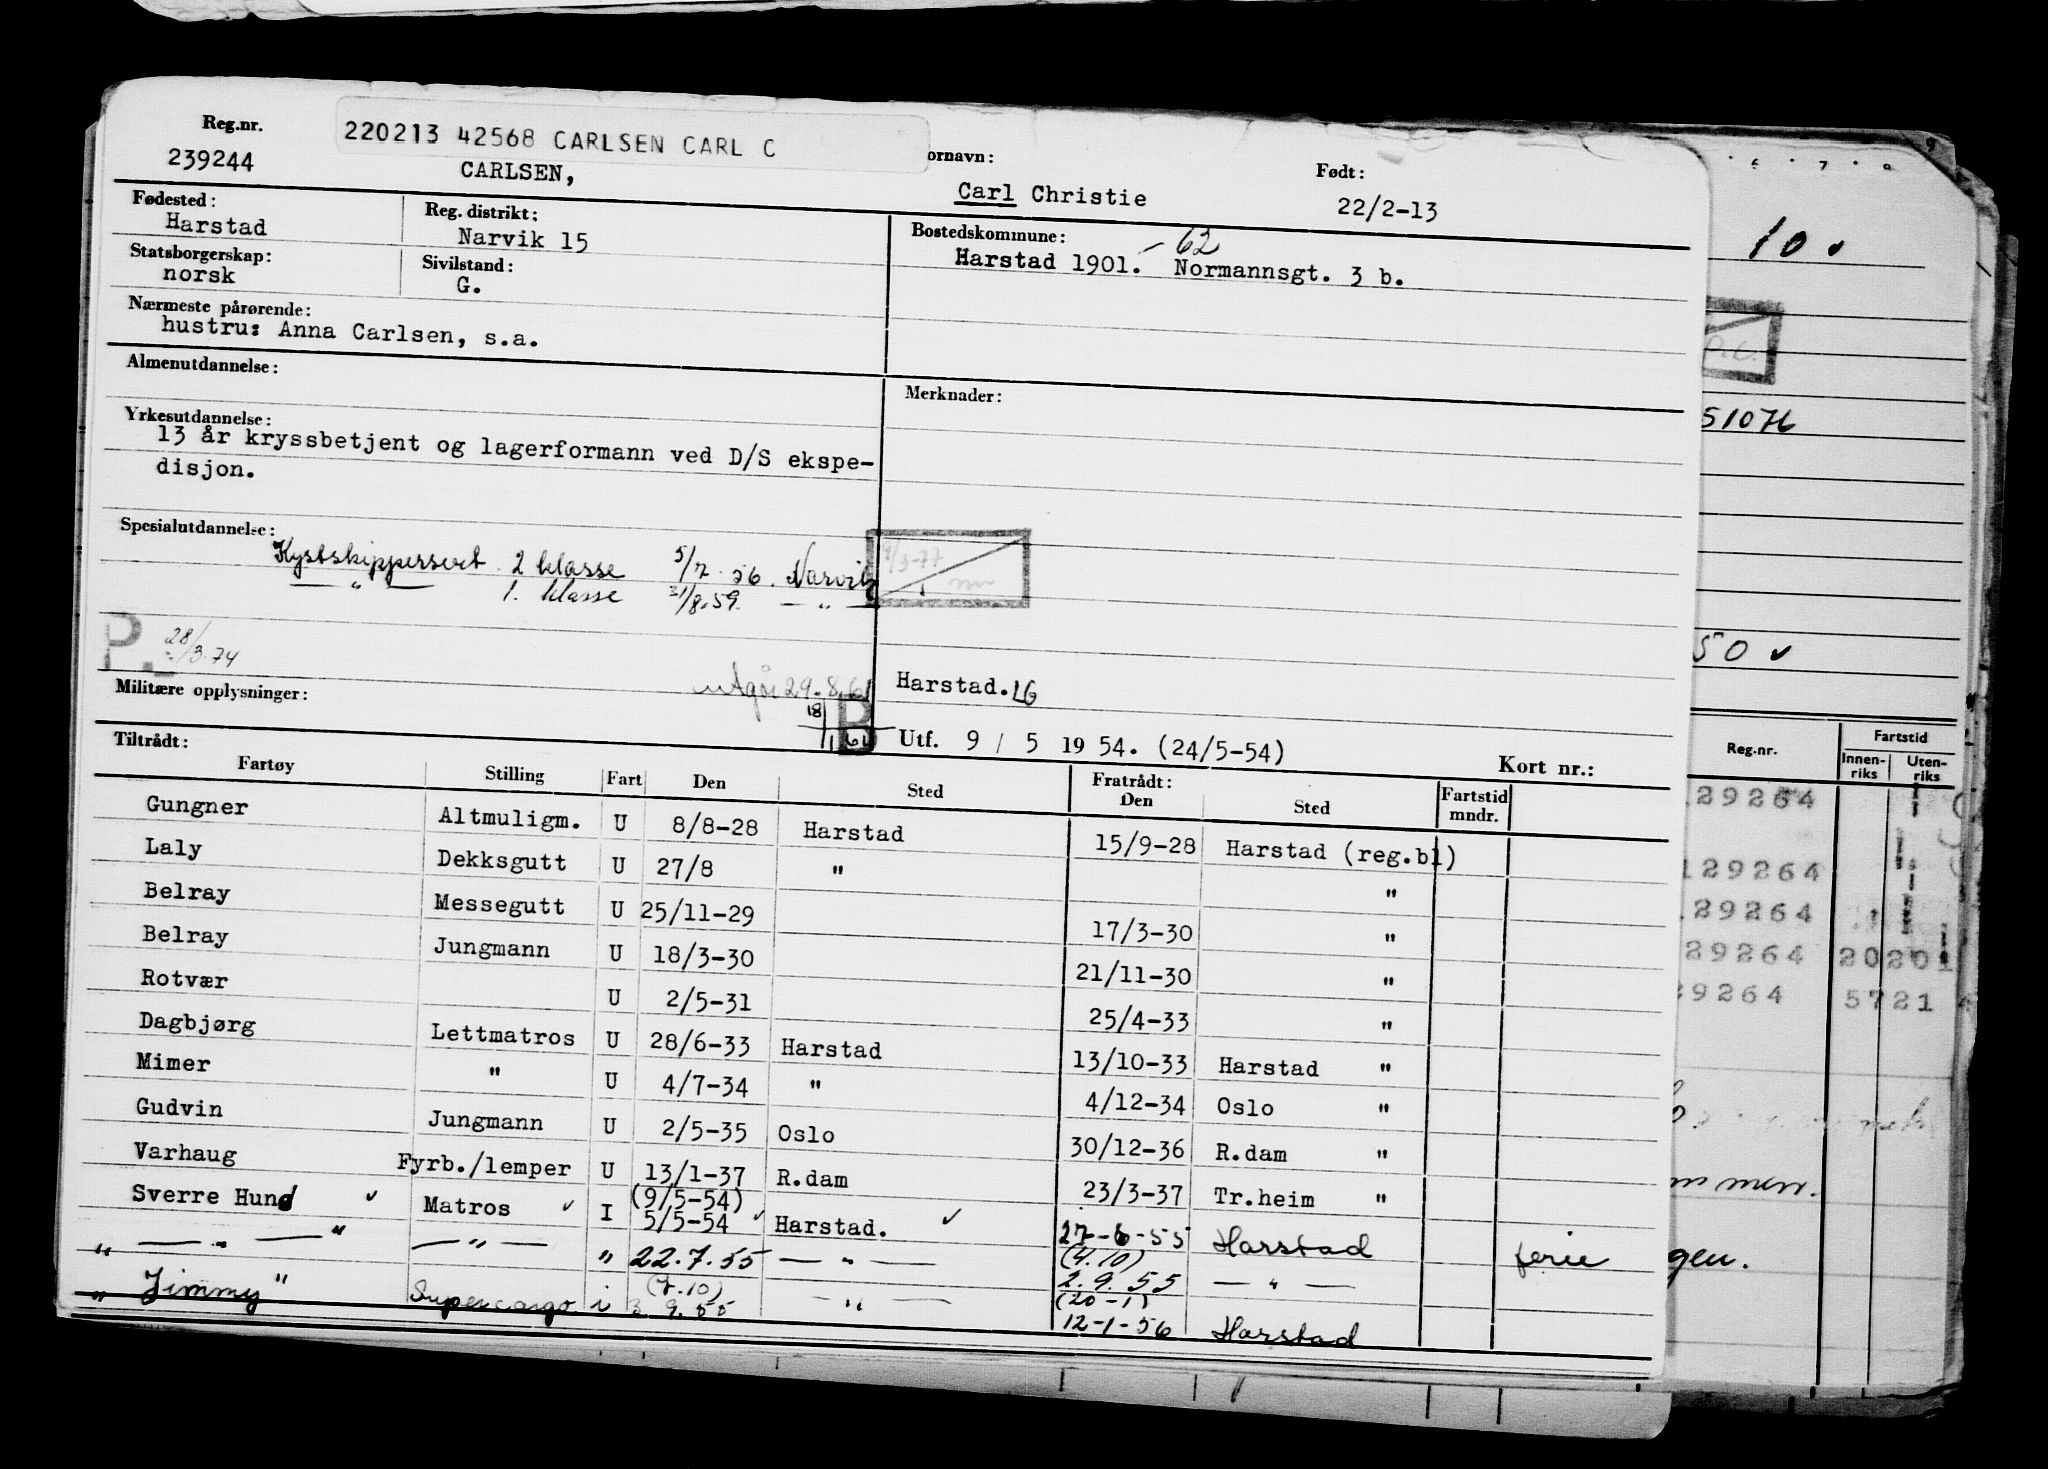 Reg.nr.
239244
220213 42568 CARLSEN CARL C
CARLSEN,
ornavn:
Carl Christie
Født:
22/2-13
Fødested:
Harstad
Reg. distrikt:
Narvik 15
Bostedskommune:
Harstad 1901. - 62 Normannsgt. 3 b.
Statsborgerskap:
norsk
Sivilstand:
G.
Nærmeste pårørende:
hustru: Anna Carlsen, s.a.
Almenutdannelse:
Merknader:
Yrkesutdannelse:
13 år kryssbetjent og lagerformann ved D/S ekspe-
disjon.
Spesialutdannelse:
Kystskippersert. 2 klasse 5/7. 56. Narvik
— " — 1. klasse 31/8.59. — " —
9/3-77
P. 28/3.74
Militære opplysninger:
utgår 29.8.61
18/1 61 B
Harstad. LG
Utf. 9 / 5 19 54. (24/5-54)
Kort nr.:
Tiltrådt:
Fartøy Stilling Fart Den Sted Fratrådt: Den Sted Fartstid mndr.
Gungner Altmuligm. U 8/8-28 Harstad 15/9-28 Harstad (reg.bl)
Laly Dekksgutt U 27/8 " "
Belray Messegutt U 25/11-29 17/3-30 "
Belray Jungmann U 18/3-30 21/11-30 "
Rotvær U 2/5-31 25/4-33 "
Dagbjørg Lettmatros U 28/6-33 Harstad 13/10-33 Harstad "
Mimer " U 4/7-34 " 4/12-34 Oslo "
Gudvin Jungmann U 2/5-35 Oslo 30/12-36 R.dam "
Varhaug Fyrb./lemper U 13/1-37 R.dam 23/3-37 Tr.heim "
Sverre Hund ✓ Matros ✓ I (9/5-54) 5/5-54 ✓ Harstad. ✓ 27-6-55 Harstad ferie
" — " — " — " — " 22.7.55 — " — (4.10) 2.9.55 — " —
" Jimmy " Supercargo i (7.10) 3.9.55 — " — (20-1) 12-1-56 Harstad
10 ✓
51076
50 ✓
Reg.nr.
Fartstid
Innen-riks
Uten-riks
129264
129264
29264
29264 2020
29264 5721
men.
gen.